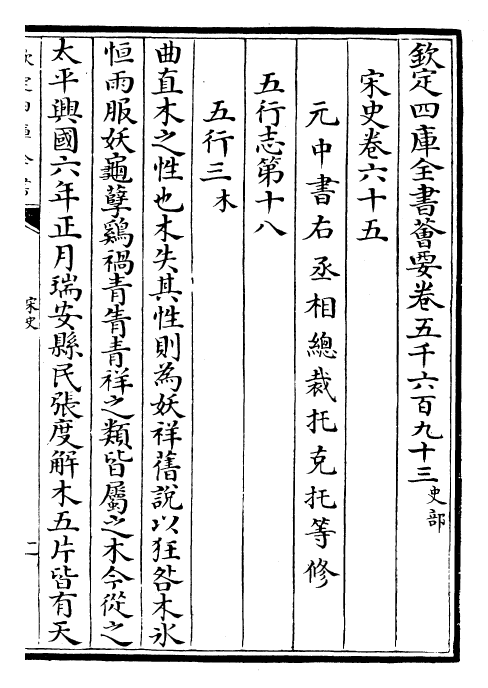 欽定四庫全書薈要卷五千六百九十三 史部
宋史卷六十五
元中書右丞相總裁托克托等修
五行志第十八
五行三 木
曲直木之性也木失其性則為妖祥舊說以狂咎木氷
恒雨服妖龜孽鷄禍青眚青祥之類皆屬之木今從之
太平興國六年正月瑞安縣民張度解木五片皆有天
宋史